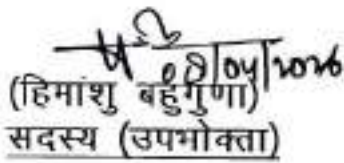 08/04/2026
(हिमांशु बहुगुणा)
सदस्य (उपभोक्ता)